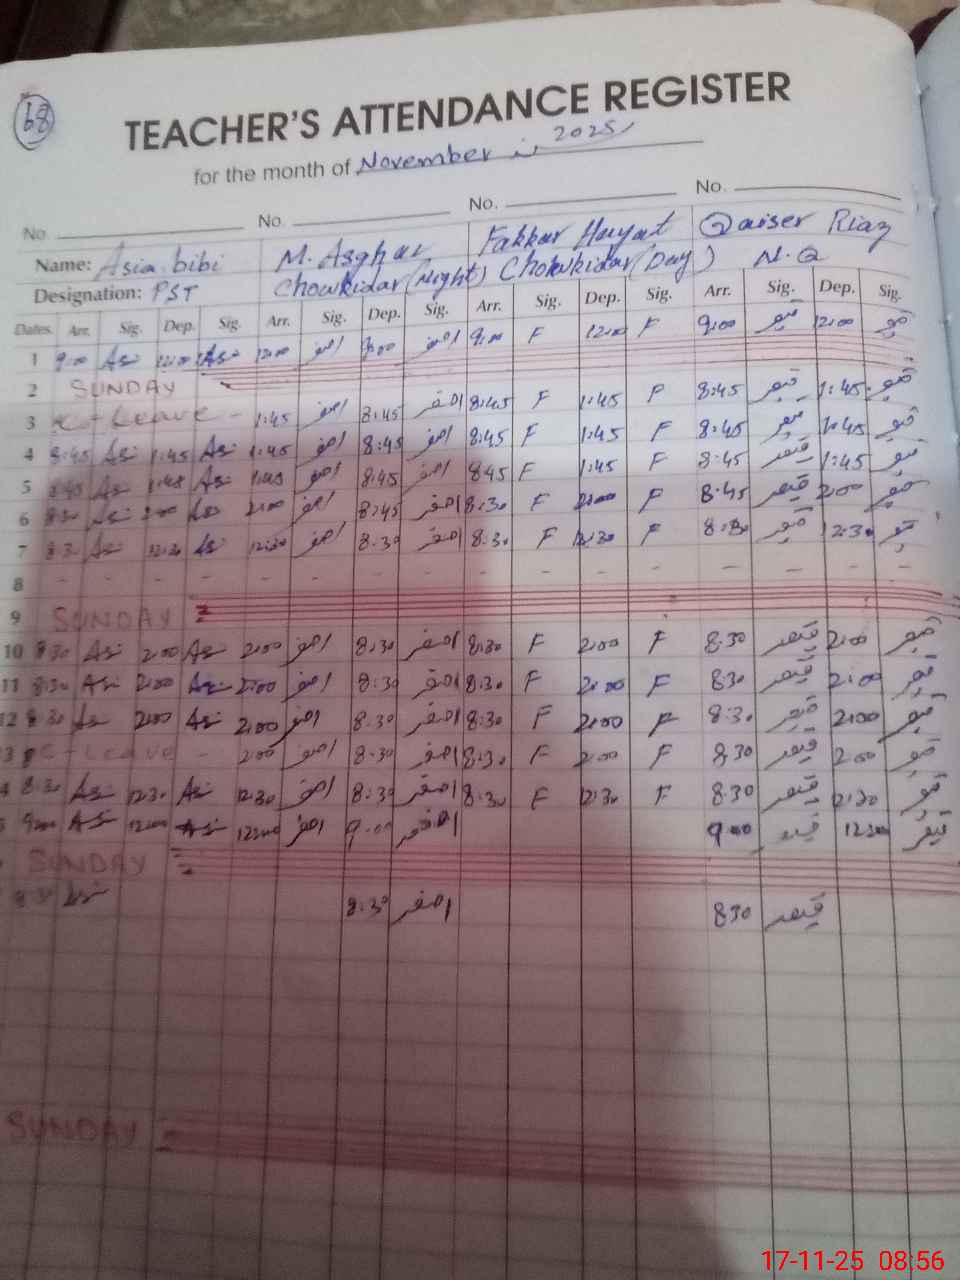 68
TEACHER'S ATTENDANCE REGISTER
for the month of November 2025
No. No. No. No.
Name: Asia bibi M. Asghar Fakhar Hayat Qaiser Riaz
Designation: PST Chowkidar (Night) Chowkidar (Day) N.Q
Dates. Arr. Sig. Dep. Sig. Arr. Sig. Dep. Sig. Arr. Sig. Dep. Sig. Arr. Sig. Dep. Sig.
1 9:00 12:00 12:00 اصغر 9:00 اصغر 9:00 F 12:00 F 9:00 قیصر 12:00
2 SUNDAY
3 C - Leave - 1:45 اصغر 8:45 اصغر 8:45 F 1:45 F 8:45 قیصر 1:45
4 8:45 1:45 1:45 اصغر 8:45 اصغر 8:45 F 1:45 F 8:45 1:45
5 8:45 1:45 1:45 اصغر 8:45 اصغر 8:45 F 1:45 F 8:45 قیصر 1:45
6 8:30 2:00 2:00 اصغر 8:45 اصغر 8:30 F 2:00 F 8:45 قیصر 2:00
7 8:30 12:30 12:30 اصغر 8:30 اصغر 8:30 F 12:30 F 8:30 قیصر 12:30
8 - - - - - - - - - - - -
9 SUNDAY
10 8:30 2:00 2:00 اصغر 8:30 اصغر 8:30 F 2:00 F 8:30 قیصر 2:00
11 8:30 2:00 2:00 اصغر 8:30 اصغر 8:30 F 2:00 F 8:30 قیصر 2:00
12 8:30 2:00 2:00 اصغر 8:30 اصغر 8:30 F 2:00 F 8:30 قیصر 2:00
3 C - Leave - 2:00 اصغر 8:30 اصغر 8:30 F 2:00 F 8:30 قیصر 2:00
4 8:30 12:30 12:30 اصغر 8:30 اصغر 8:30 F 12:30 F 8:30 قیصر 12:30
9:00 12:00 12:00 اصغر 9:00 اصغر 9:00 قیصر 12:00 قیصر
SUNDAY
8:30 8:30 اصغر 8:30 قیصر
SUNDAY
17-11-25 08:56